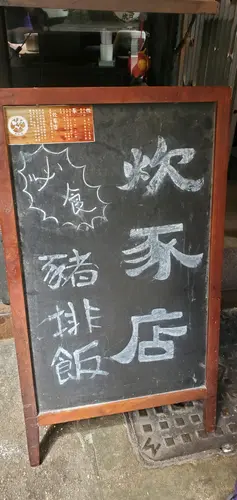 炊豕店
少食
豬排飯